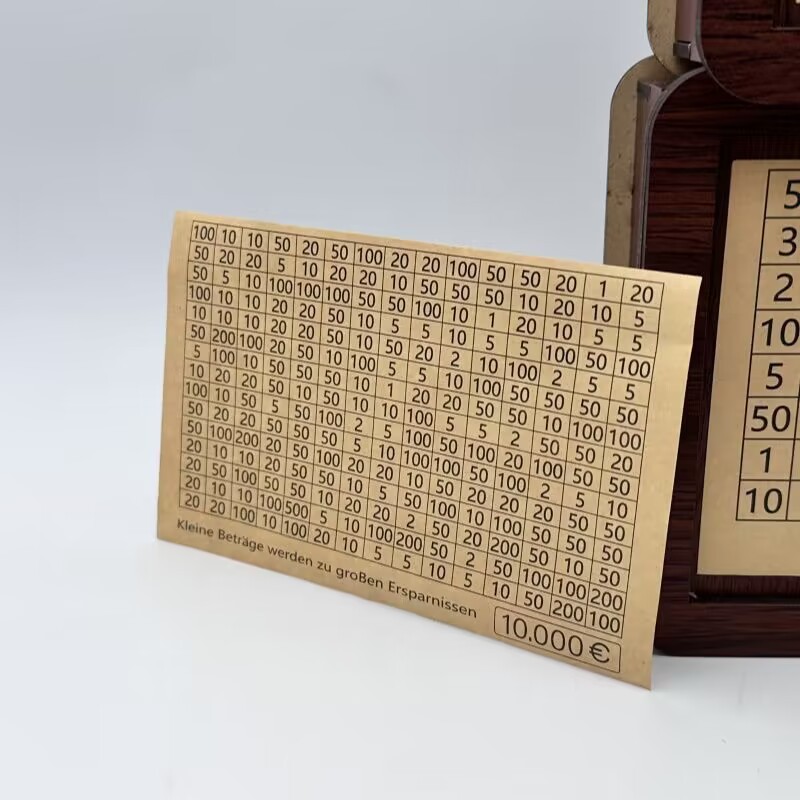 100 10 10 50 20 50 100 20 20 100 50 50 20 1 20
50 20 20 5 10 20 20 10 50 50 50 10 20 10 5
50 5 10 100 100 100 50 50 100 10 1 20 10 5 5
100 10 10 20 20 50 10 5 5 10 5 5 100 50 100
10 10 10 20 20 50 10 50 20 2 10 100 2 5 5
50 200 100 20 50 10 100 5 5 10 100 50 50 50 50
5 100 10 50 50 50 10 1 20 20 50 50 10 100 100
10 20 20 50 50 50 10 10 100 5 5 2 50 50 20
100 10 50 5 50 100 2 5 100 50 100 20 100 50 50
50 20 20 50 50 50 5 10 100 100 50 100 2 5 10
50 100 200 20 50 100 20 20 10 50 20 20 20 50 50
20 10 10 20 50 20 10 5 50 10 100 10 50 50 50
20 50 100 50 50 10 20 20 2 50 20 200 50 10 50
20 10 10 100 500 5 10 100 200 50 2 50 100 100 200
20 20 100 10 100 20 10 5 5 10 5 10 50 200 100
Kleine Beträge werden zu großen Ersparnissen
10.000 €
5
3
2
10
5
50
1
10